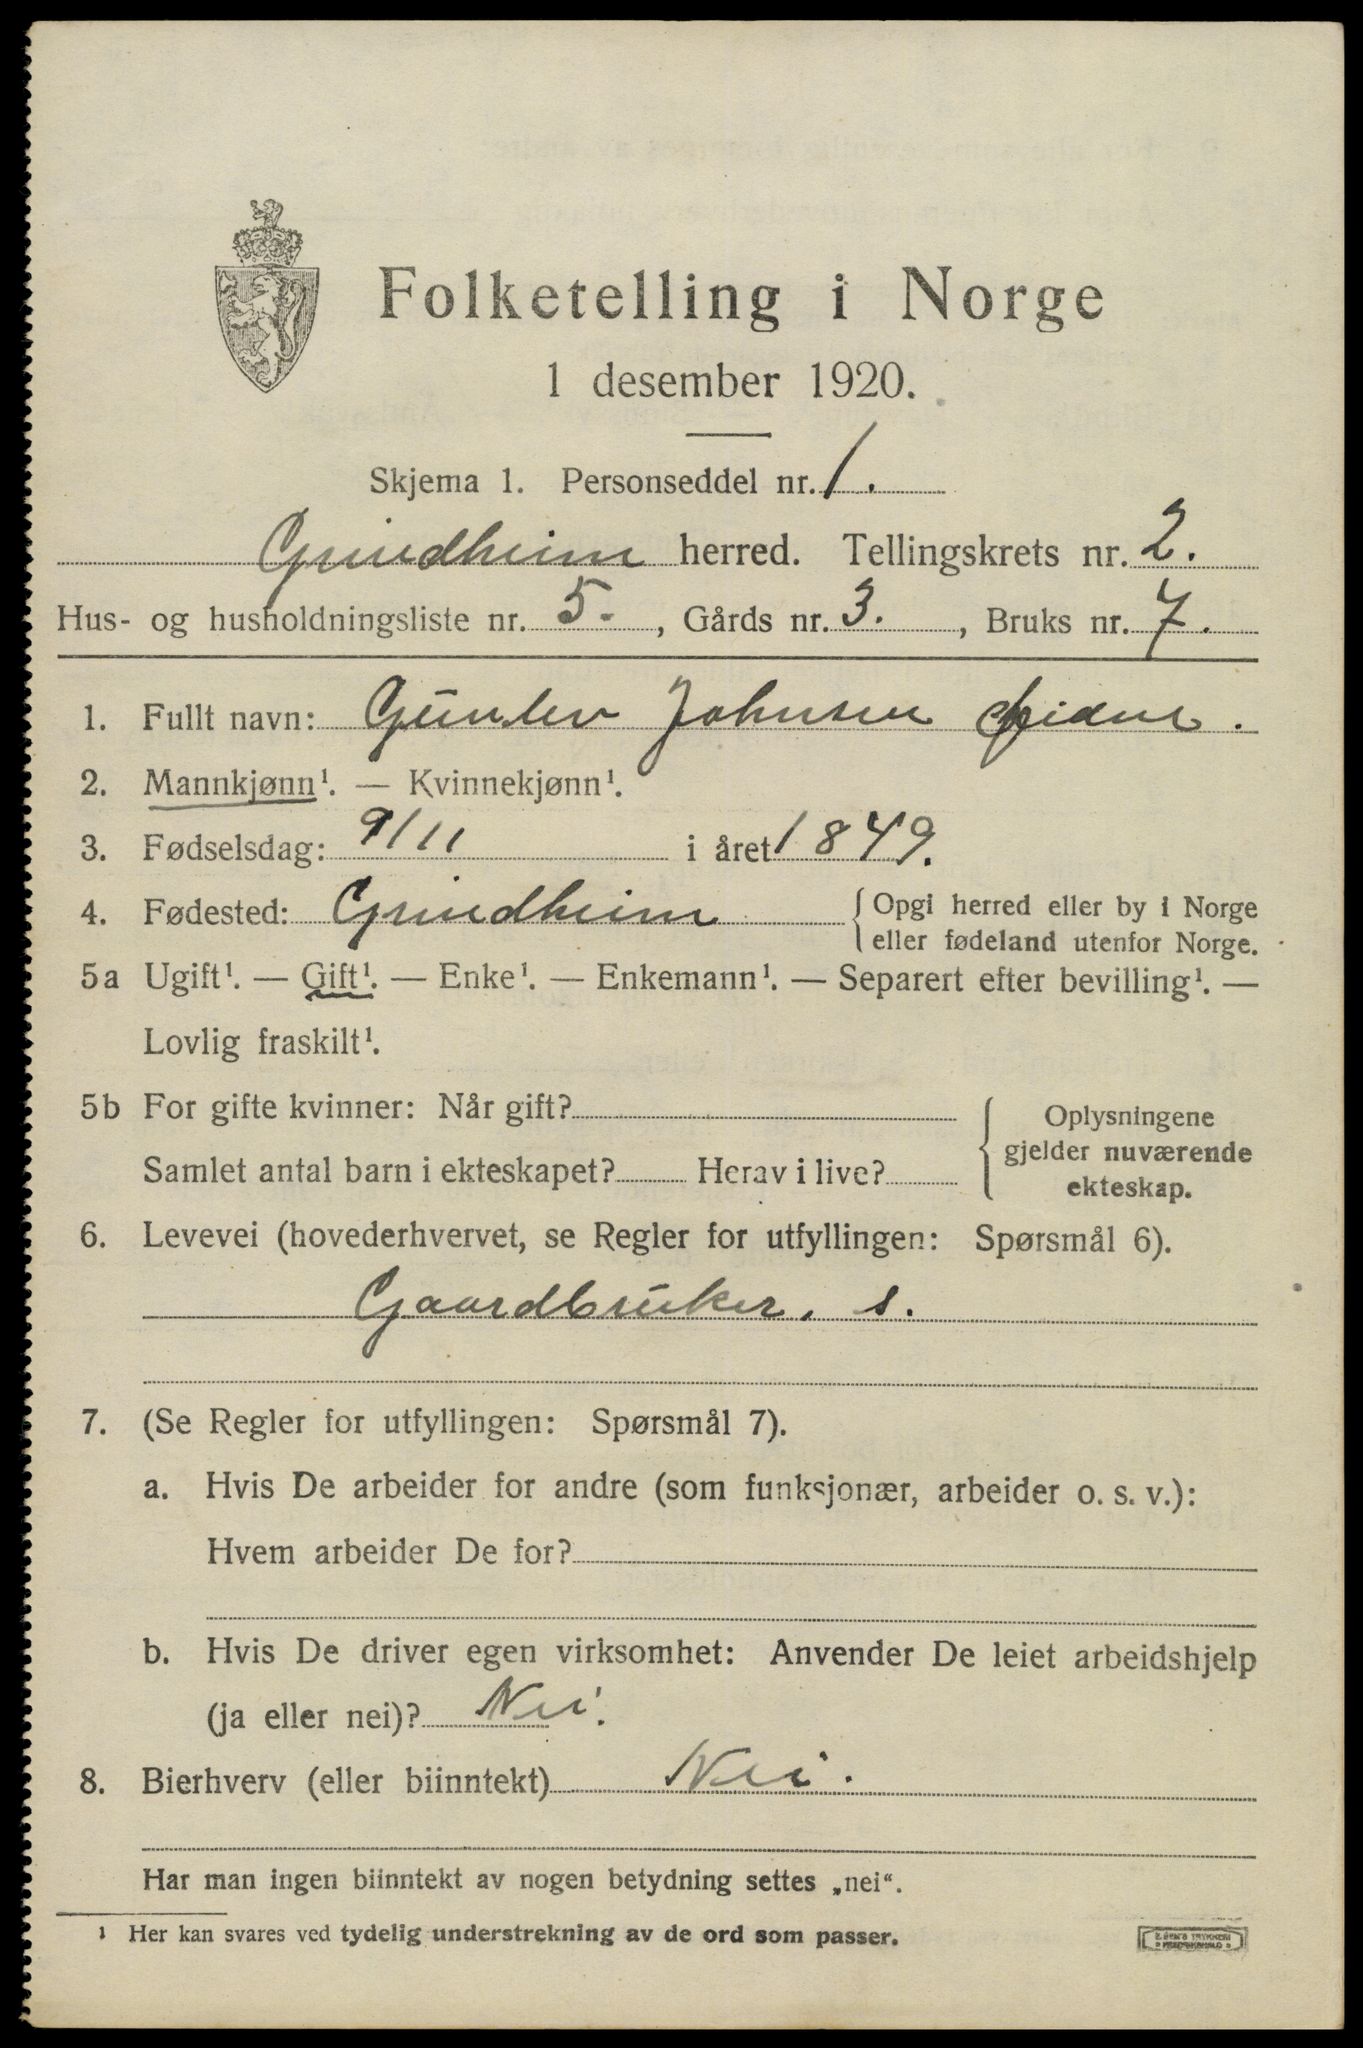 Folketelling i Norge
1 desember 1920.
Skjema 1. Personseddel nr. 1.
Grindheim herred. Tellingskrets nr. 2.
Hus- og husholdningsliste nr. 5. , Gårds nr. 3. , Bruks nr. 7.
1. Fullt navn: Gunlev Johnsen
2. Mannkjønn¹. — Kvinnekjønn¹.
3. Fødselsdag: 9/11 i året 1849.
4. Fødested: Grindheim { Opgi herred eller by i Norge
eller fødeland utenfor Norge.
5a Ugift¹. — Gift¹. — Enke¹. — Enkemann¹. — Separert efter bevilling¹. —
Lovlig fraskilt¹.
5b For gifte kvinner: Når gift?
Samlet antal barn i ekteskapet? Herav i live?
{ Oplysningene
gjelder nuværende
ekteskap.
6. Levevei (hovederhvervet, se Regler for utfyllingen: Spørsmål 6).
Gaardbruker. s.
7. (Se Regler for utfyllingen: Spørsmål 7).
a. Hvis De arbeider for andre (som funksjonær, arbeider o. s. v.):
Hvem arbeider De for?
b. Hvis De driver egen virksomhet: Anvender De leiet arbeidshjelp
(ja eller nei)? Nei.
8. Bierhverv (eller biinntekt) Nei.
Har man ingen biinntekt av nogen betydning settes „nei“.
¹ Her kan svares ved tydelig understrekning av de ord som passer.